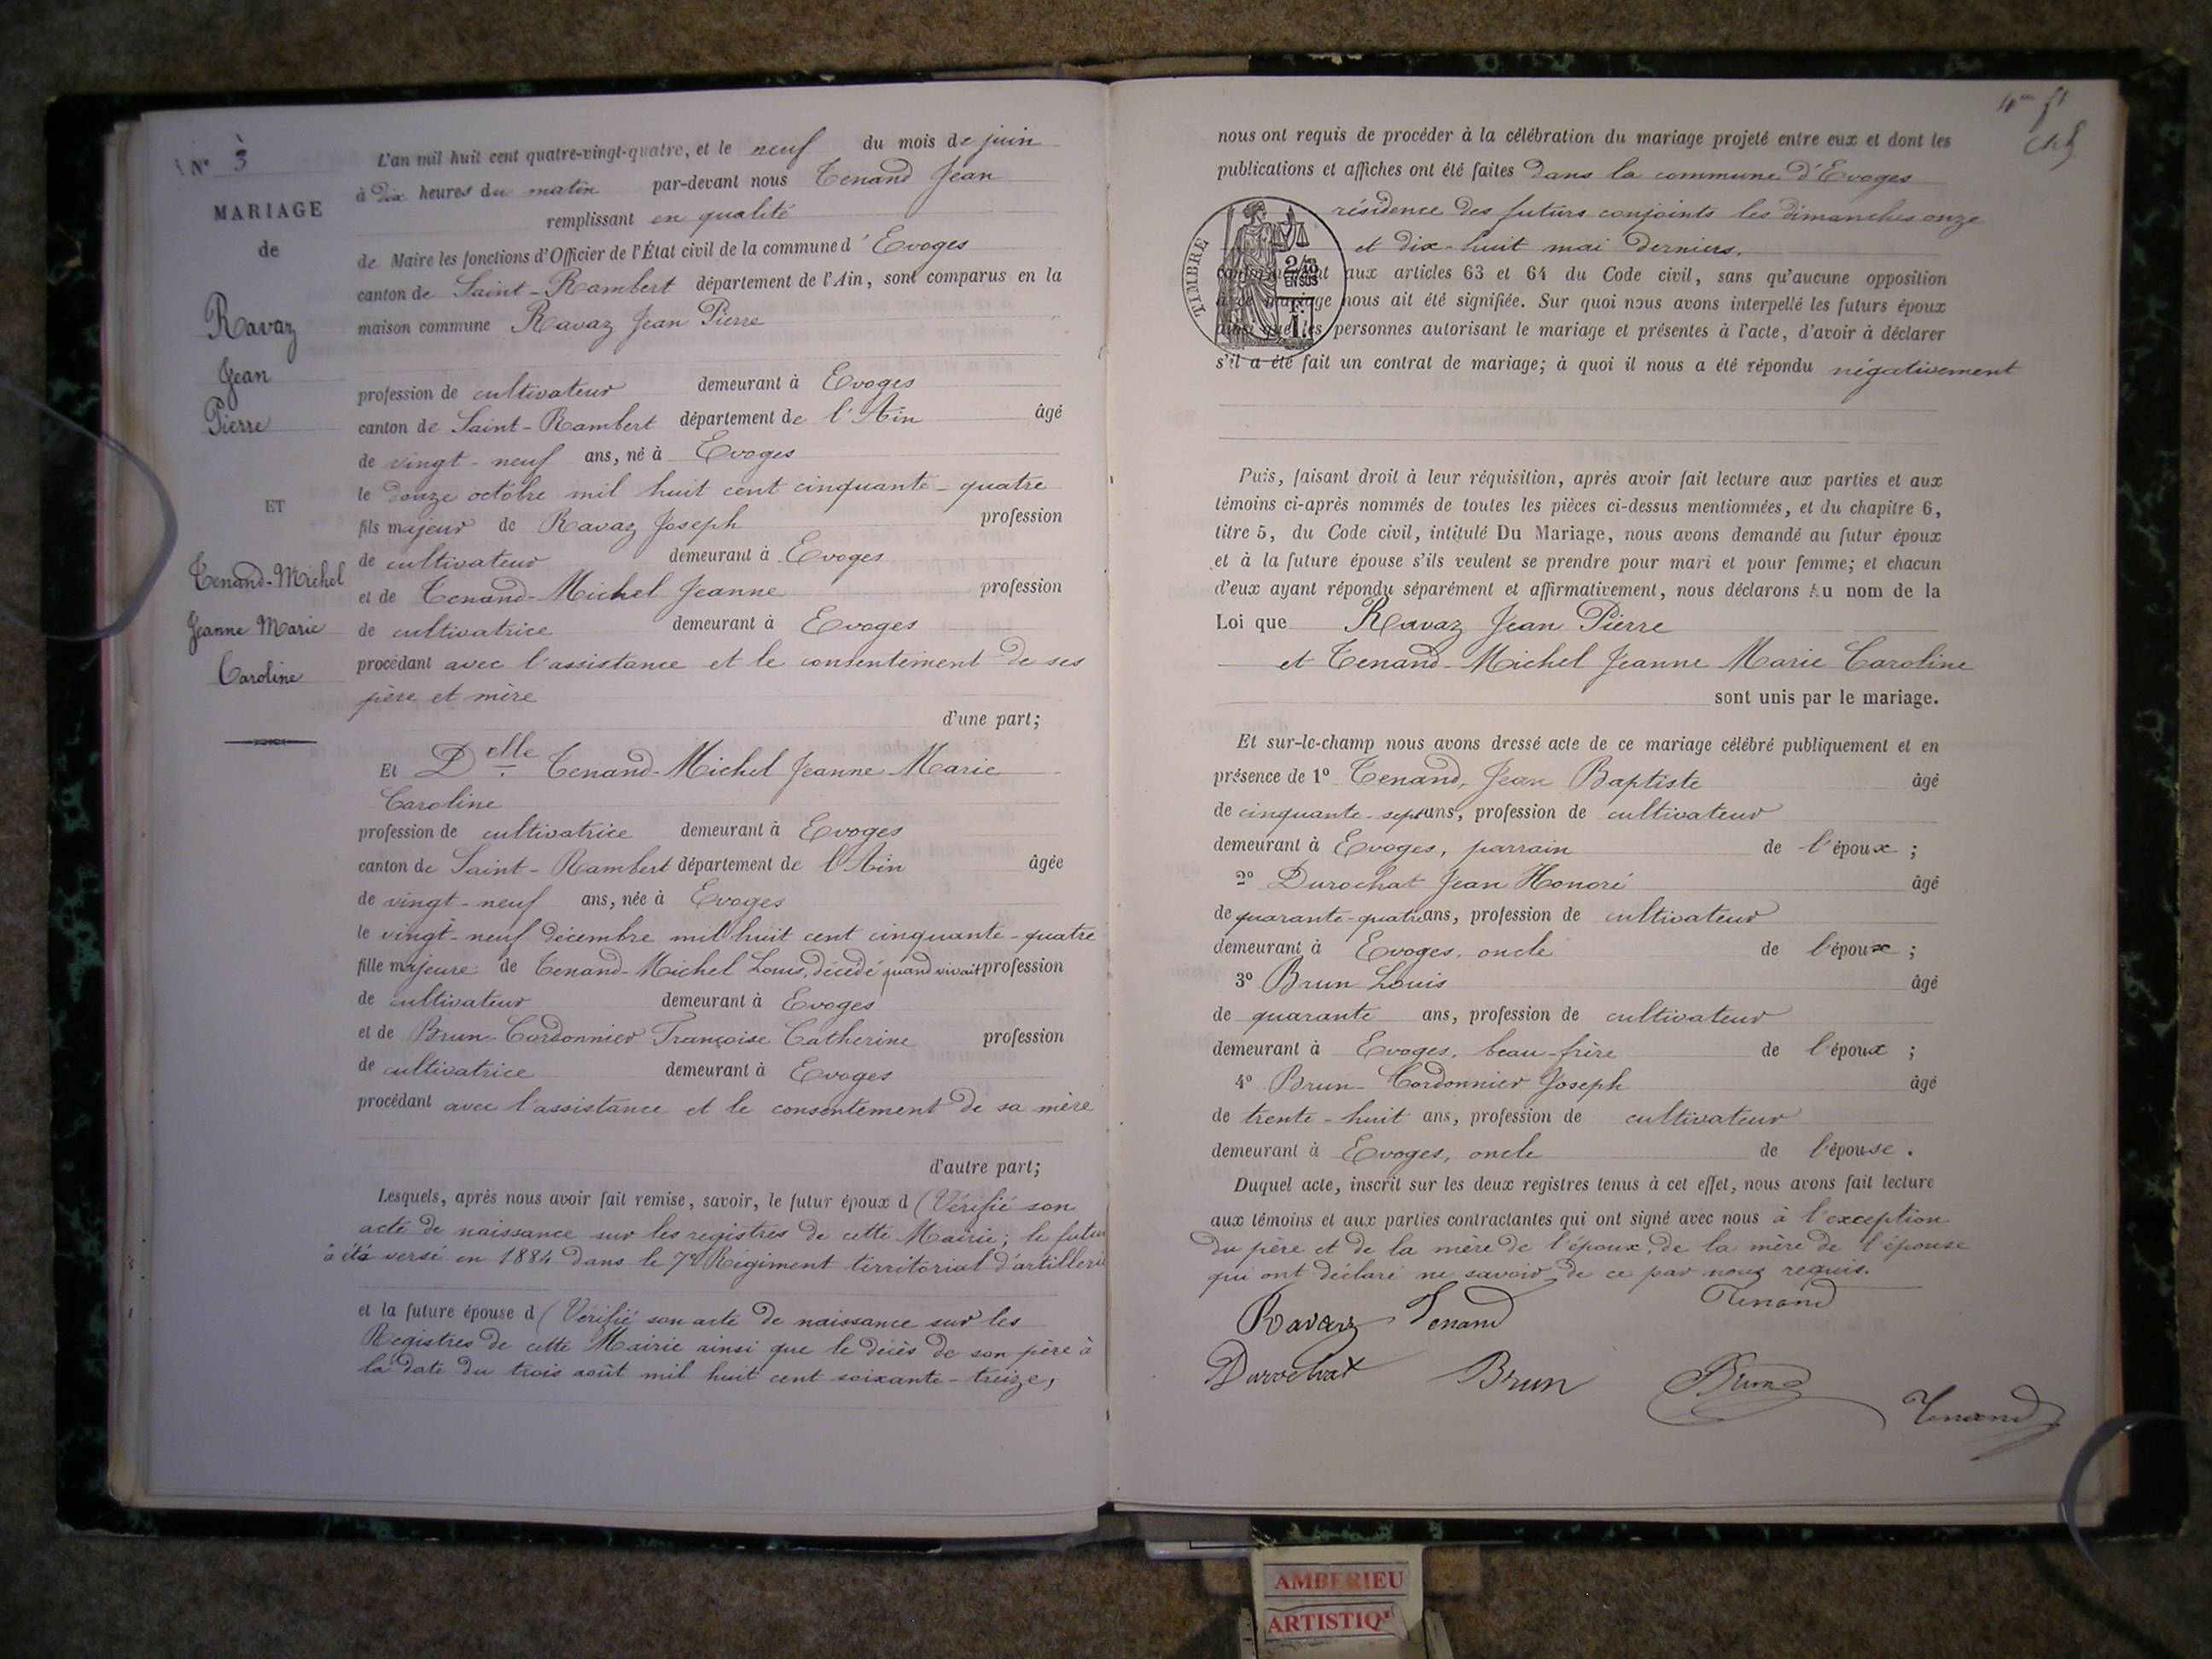 N° 3
MARIAGE
de
Ravaz
Jean
Pierre
ET
Tenand-Michel
Jeanne Marie
Caroline
L'an mil huit cent quatre-vingt-quatre, et le neuf du mois de juin
à dix heures du matin par-devant nous Tenand Jean
remplissant en qualité
de Maire les fonctions d'Officier de l'État civil de la commune d'Evoges
canton de Saint-Rambert département de l'Ain, sont comparus en la
maison commune Ravaz Jean Pierre
profession de cultivateur demeurant à Evoges
canton de Saint-Rambert département de l'Ain âgé
de vingt-neuf ans, né à Evoges
le douze octobre mil huit cent cinquante-quatre
fils majeur de Ravaz Joseph profession
de cultivateur demeurant à Evoges
et de Tenand-Michel Jeanne profession
de cultivatrice demeurant à Evoges
procédant avec l'assistance et le consentement de ses
père et mère
d'une part;
Et Delle Tenand-Michel Jeanne Marie
Caroline
profession de cultivatrice demeurant à Evoges
canton de Saint-Rambert département de l'Ain âgée
de vingt-neuf ans, née à Evoges
le vingt-neuf décembre mil huit cent cinquante-quatre
fille majeure de Tenand-Michel Louis, décédé quand vivait profession
de cultivateur demeurant à Evoges
et de Brun-Cordonnier Françoise Catherine profession
de cultivatrice demeurant à Evoges
procédant avec l'assistance et le consentement de sa mère
d'autre part;
Lesquels, après nous avoir fait remise, savoir, le futur époux d (Vérifié son
acte de naissance sur les registres de cette Mairie; le futur
a été versé en 1884 dans le 7e Régiment territorial d'artillerie
et la future épouse d (Vérifié son acte de naissance sur les
Registres de cette Mairie ainsi que le décès de son père à
la date du trois août mil huit cent soixante-treize,
nous ont requis de procéder à la célébration du mariage projeté entre eux et dont les
publications et affiches ont été faites dans la commune d'Evoges
résidence des futurs conjoints les dimanches onze
et dix-huit mai derniers,
conformément aux articles 63 et 64 du Code civil, sans qu'aucune opposition
à ce mariage nous ait été signifiée. Sur quoi nous avons interpellé les futurs époux
ainsi que les personnes autorisant le mariage et présentes à l'acte, d'avoir à déclarer
s'il a été fait un contrat de mariage; à quoi il nous a été répondu négativement
TIMBRE
2/10
EN SUS
1F.
Puis, faisant droit à leur réquisition, après avoir fait lecture aux parties et aux
témoins ci-après nommés de toutes les pièces ci-dessus mentionnées, et du chapitre 6,
titre 5, du Code civil, intitulé Du Mariage, nous avons demandé au futur époux
et à la future épouse s'ils veulent se prendre pour mari et pour femme; et chacun
d'eux ayant répondu séparément et affirmativement, nous déclarons Au nom de la
Loi que Ravaz Jean Pierre
et Tenand-Michel Jeanne Marie Caroline
sont unis par le mariage.
Et sur-le-champ nous avons dressé acte de ce mariage célébré publiquement et en
présence de 1° Tenand, Jean Baptiste âgé
de cinquante-sept ans, profession de cultivateur
demeurant à Evoges, parrain de l'époux ;
2° Durochat Jean Honoré âgé
de quarante-quatre ans, profession de cultivateur
demeurant à Evoges, oncle de l'époux ;
3° Brun Louis âgé
de quarante ans, profession de cultivateur
demeurant à Evoges, beau-frère de l'époux ;
4° Brun-Cordonnier Joseph âgé
de trente-huit ans, profession de cultivateur
demeurant à Evoges, oncle de l'épouse.
Duquel acte, inscrit sur les deux registres tenus à cet effet, nous avons fait lecture
aux témoins et aux parties contractantes qui ont signé avec nous à l'exception
du père et de la mère de l'époux, de la mère de l'épouse
qui ont déclaré ne savoir, de ce par nous requis.
Ravaz Tenand Tenand
Durochat Brun Brun Tenand
AMBERIEU
ARTISTIQ